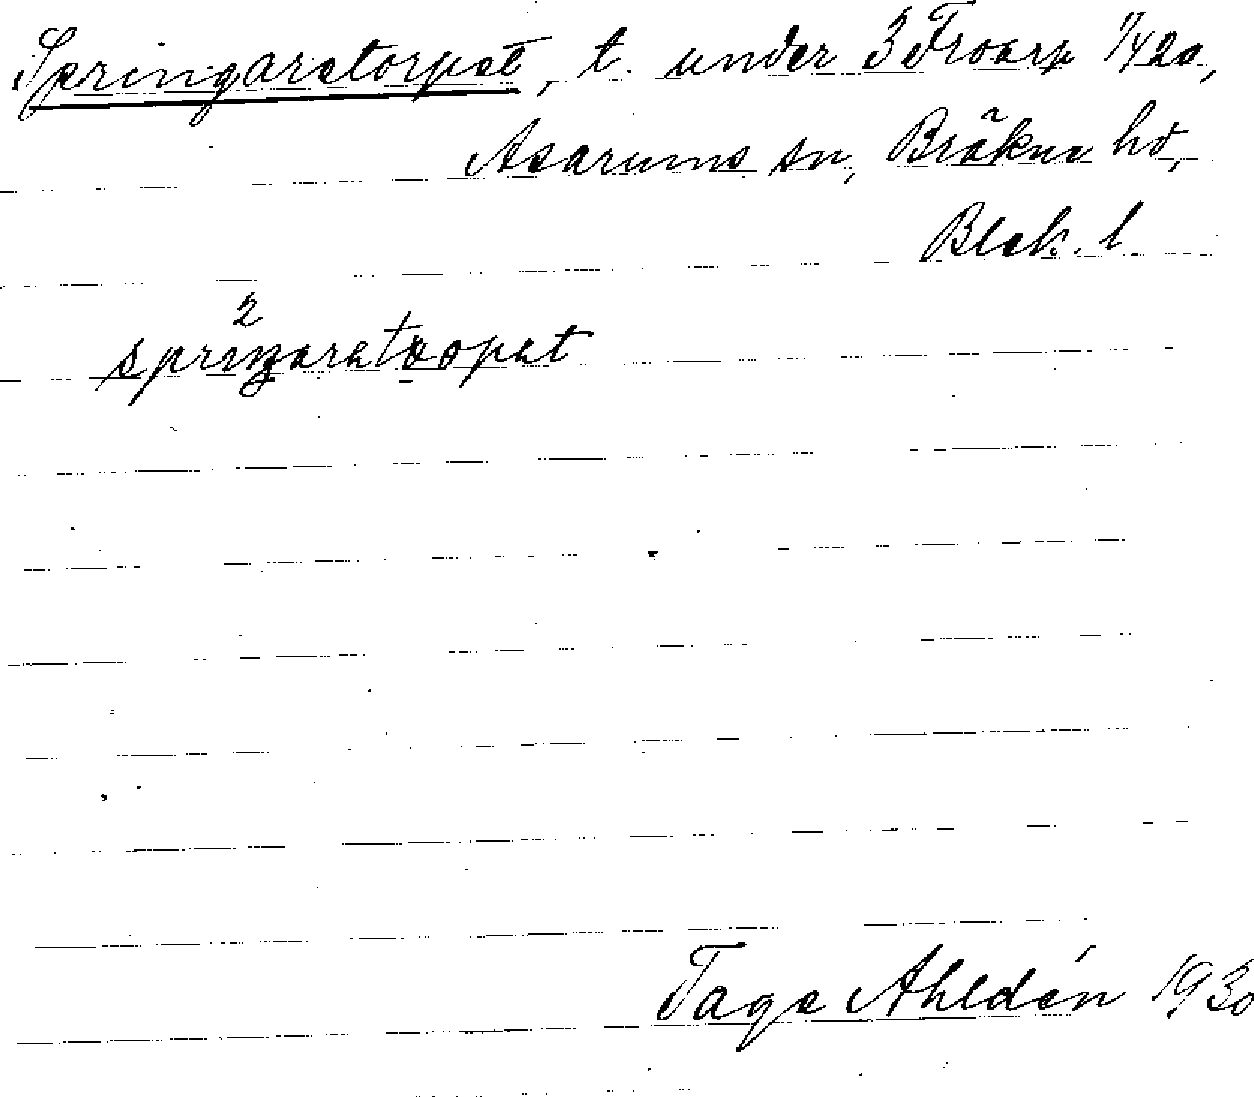 Springaretorpet, t. under 3 Froarp 1/420,
Asarums sn, Bräkne hd,
Blek. l.
2
spriŋaretoopet
Tage Ahldén 1930